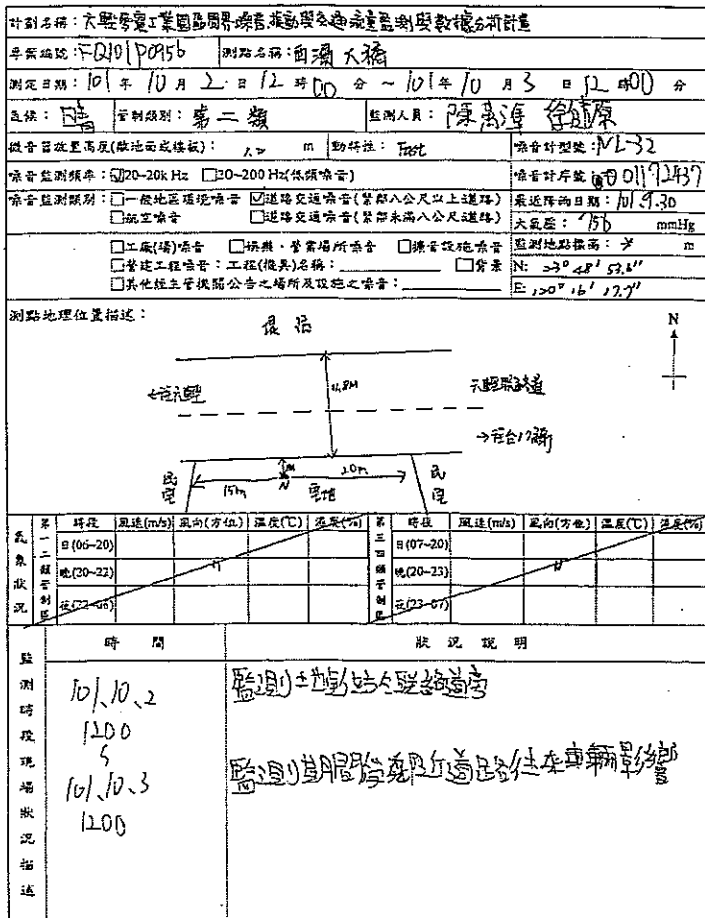 計劃名稱：六輕麥寮工業園區周界噪音、振動與交通流量監測與數據分析計畫
專案編號：FQ101P0956 測點名稱：西濱大橋
測定日期：101年10月2日12時00分～101年10月3日12時00分
氣候：晴 管制類別：第二類 監測人員：陳
微音器放置高度(離地面或樓板)：1.2 m 動特性：Fast 噪音計型號：NL-32
噪音監測頻率：☑20~20k Hz □20~200 Hz(低頻噪音) 噪音計序號：01192437
噪音監測類別：□一般地區環境噪音 ☑道路交通噪音(緊鄰八公尺以上道路) 最近降雨日期：101.9.30
□航空噪音 □道路交通噪音(緊鄰未滿八公尺道路) 大氣壓：756 mmHg
□工廠(場)噪音 □娛樂、營業場所噪音 □擴音設施噪音 監測地點標高：7 m
□營建工程噪音：工程(機具)名稱： □背景 N: 23° 48' 53.6"
□其他經主管機關公告之場所及設施之噪音： E: 120° 16' 17.7"
測點地理位置描述：
N
堤防
←往六輕 14.8M 六輕聯絡道
→往台17線
民宅 15m 1m N 空地 20m 民宅
氣象狀況 第一二類管制區 時段 風速(m/s) 風向(方位) 溫度(℃) 濕度(%) 第三四類管制區 時段 風速(m/s) 風向(方位) 溫度(℃) 濕度(%)
日(06~20) 日(07~20)
晚(20~22) 晚(20~23)
夜(22~06) 夜(23~07)
監測時段現場狀況描述 時間 狀況說明
101、10、2 監測地點於六輕聯絡道旁
1200
101、10、3 監測期間受附近道路往來車輛影響
1200